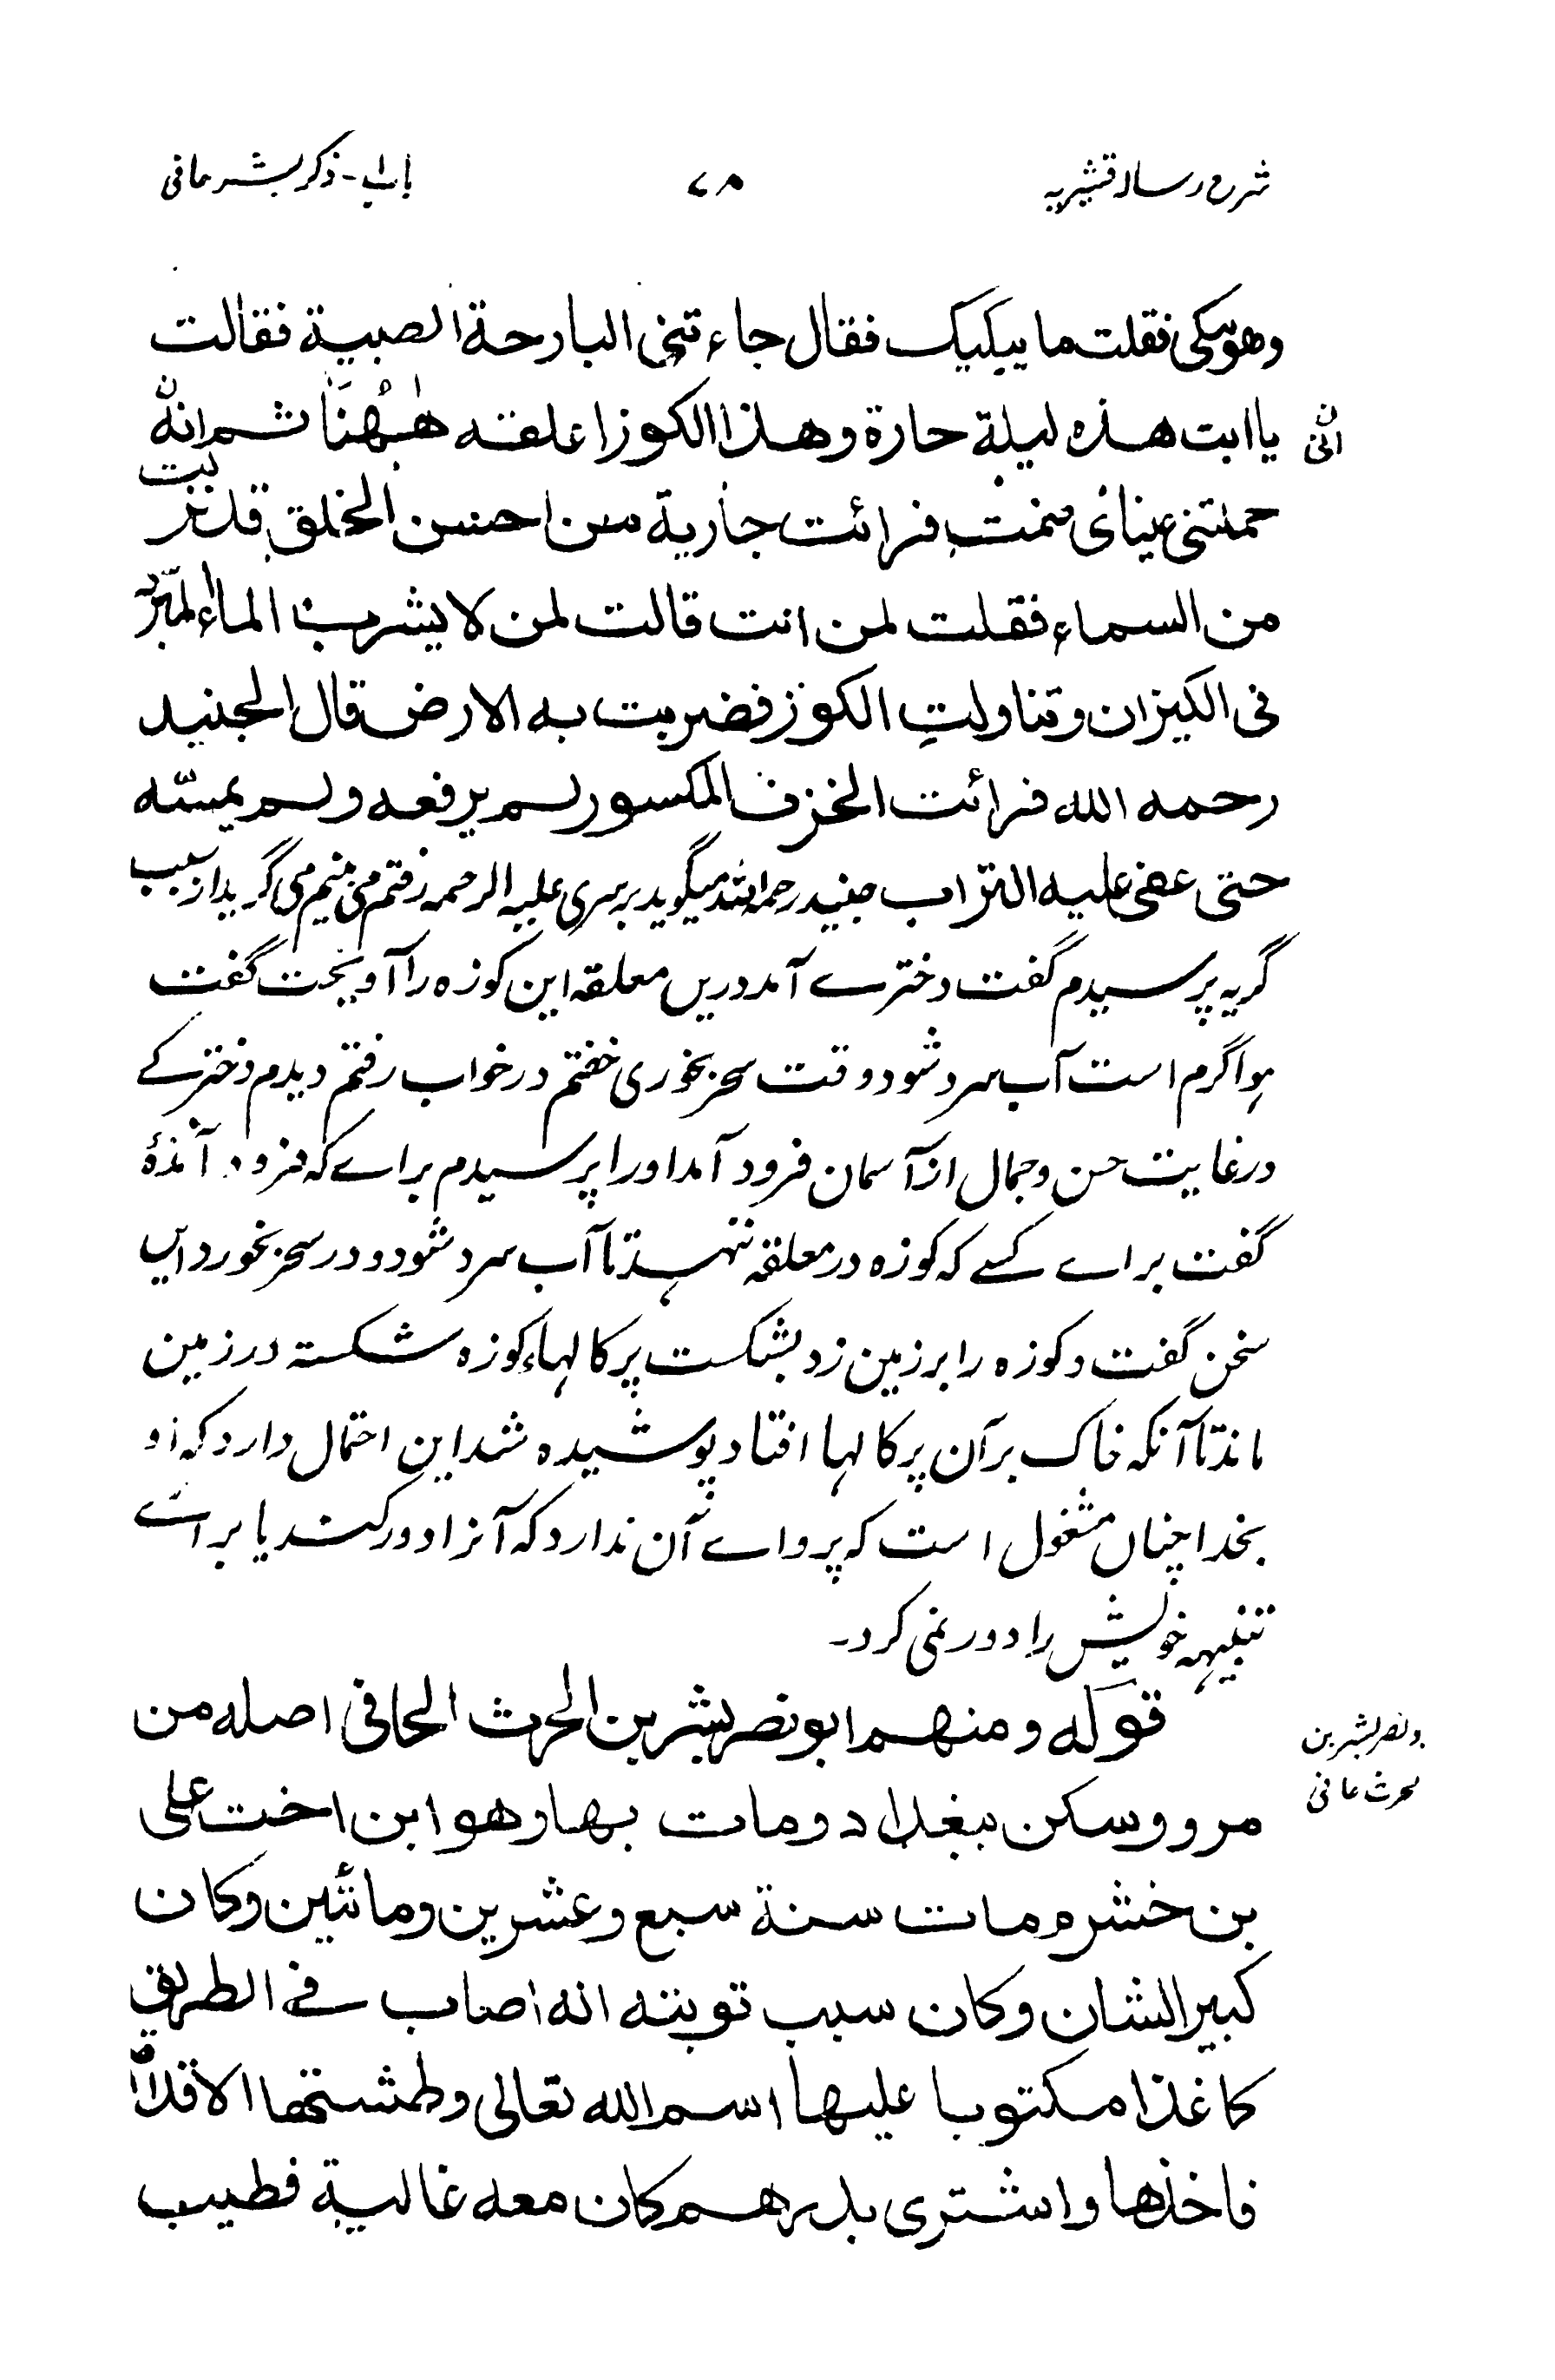 شرح رسالہ قشیریہ
۷۸
باب - ذکر بشر حافی
وهو یبکی فقلت ما یبکیک فقال جاءتنی البارحة الصبیة فقالت
یا ابت هذه لیلة حارة وهذا الکوز اعلقه هٰهُنَا ثم انهٗ
انیٖ
حملتنی عینای فنمت فرائت جاریة من احسن الخلق قد نزلت
من السماء فقلت لمن انت قالت لمن لا یشرب الماء المبرّد
فی الکیزان وتناولتِ الکوز فضربت به الارض قال الجنید
رحمه الله فرائت الخزف المکسور لم یرفعه ولم یمسّه
حتی عفی علیه التراب جنید رحمہ اللہ میگوید بر سری علیہ الرحمہ رفتم می بینم می گرید از سبب
گریہ پرسیدم گفت دخترے آمد دریں معلقہ این کوزہ را آویخت گفت
ہوا گرم است آب سرد شود وقت سحر بخوری خفتم در خواب رفتم دیدم دخترکے
در غایت حسن و جمال از آسمان فرود آمد اورا پرسیدم براے کہ فرود آمدۂ
گفت براے کسے کہ کوزہ در معلقہ ننہد تا آب سرد شود و در سحر بخورد ایں
سخن گفت و کوزہ را بر زمین زد بشکست پرکالہاء کوزہ شکستہ در زمین
ماند تا آنکہ خاک بر آن پرکالہا افتاد پوشیدہ شد این احتمال دارد کہ او
بخدا چناں مشغول است کہ پرواے آن ندارد کہ آنرا دور کند یا براے
تنبیہہ خویش را دور نمی کرد۔
قوله ومنهم ابو نصر بشر بن الحرث الحافی اصله من
ونصر بشر بن
حرث حافی
مرو وسکن ببغداد ومات بها وهو ابن اخت علی
بن خشرم مات سنة سبع وعشرین ومائتین وکان
کبیر الشان وکان سبب توبته انه اصاب فی الطریق
کاغذا مکتوبا علیها اسم الله تعالی وطمشتها الاقدام
فاخذها واشتری بدرهم کان معه غالیة فطیب